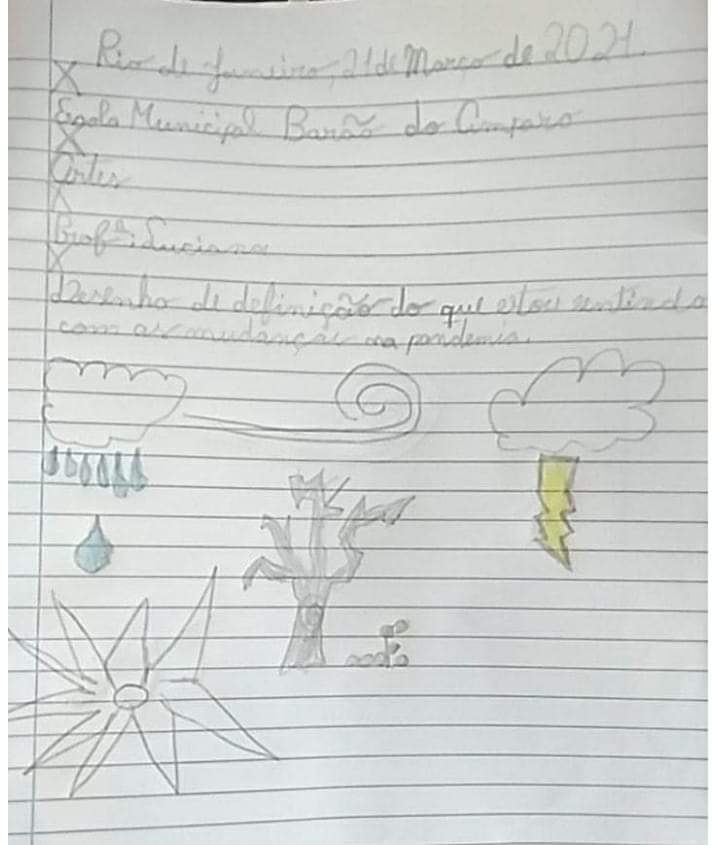 Rio de Janeiro, 21 de Março de 2021.
X
Escola Municipal Barão do Amparo
X
Artes
X
Profª: Luciana
X
Desenho de definição do que estou sentindo
com as mudanças na pandemia.